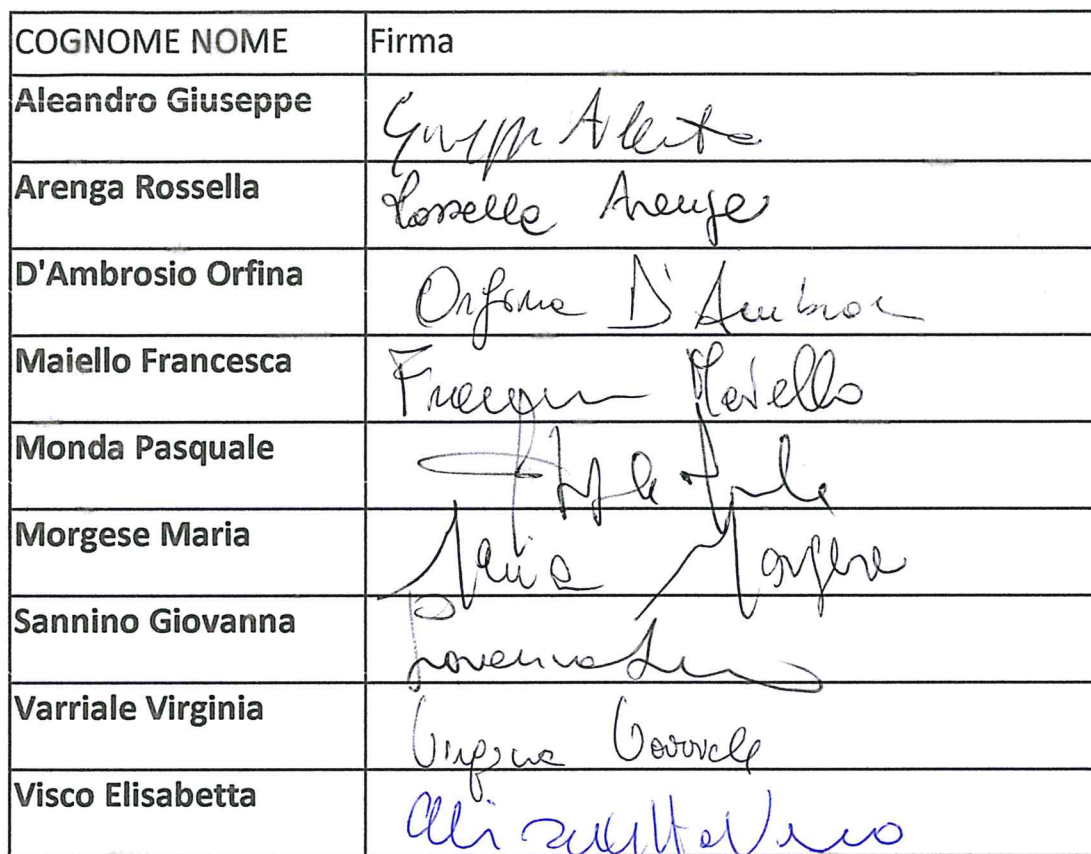 COGNOME NOME Firma
Aleandro Giuseppe
Arenga Rossella Rossella Arenga
D'Ambrosio Orfina Orfina D'Ambros
Maiello Francesca Francesca Maiello
Monda Pasquale
Morgese Maria Maria Morgese
Sannino Giovanna Giovanna
Varriale Virginia Virginia Varriale
Visco Elisabetta Elisabetta Visco